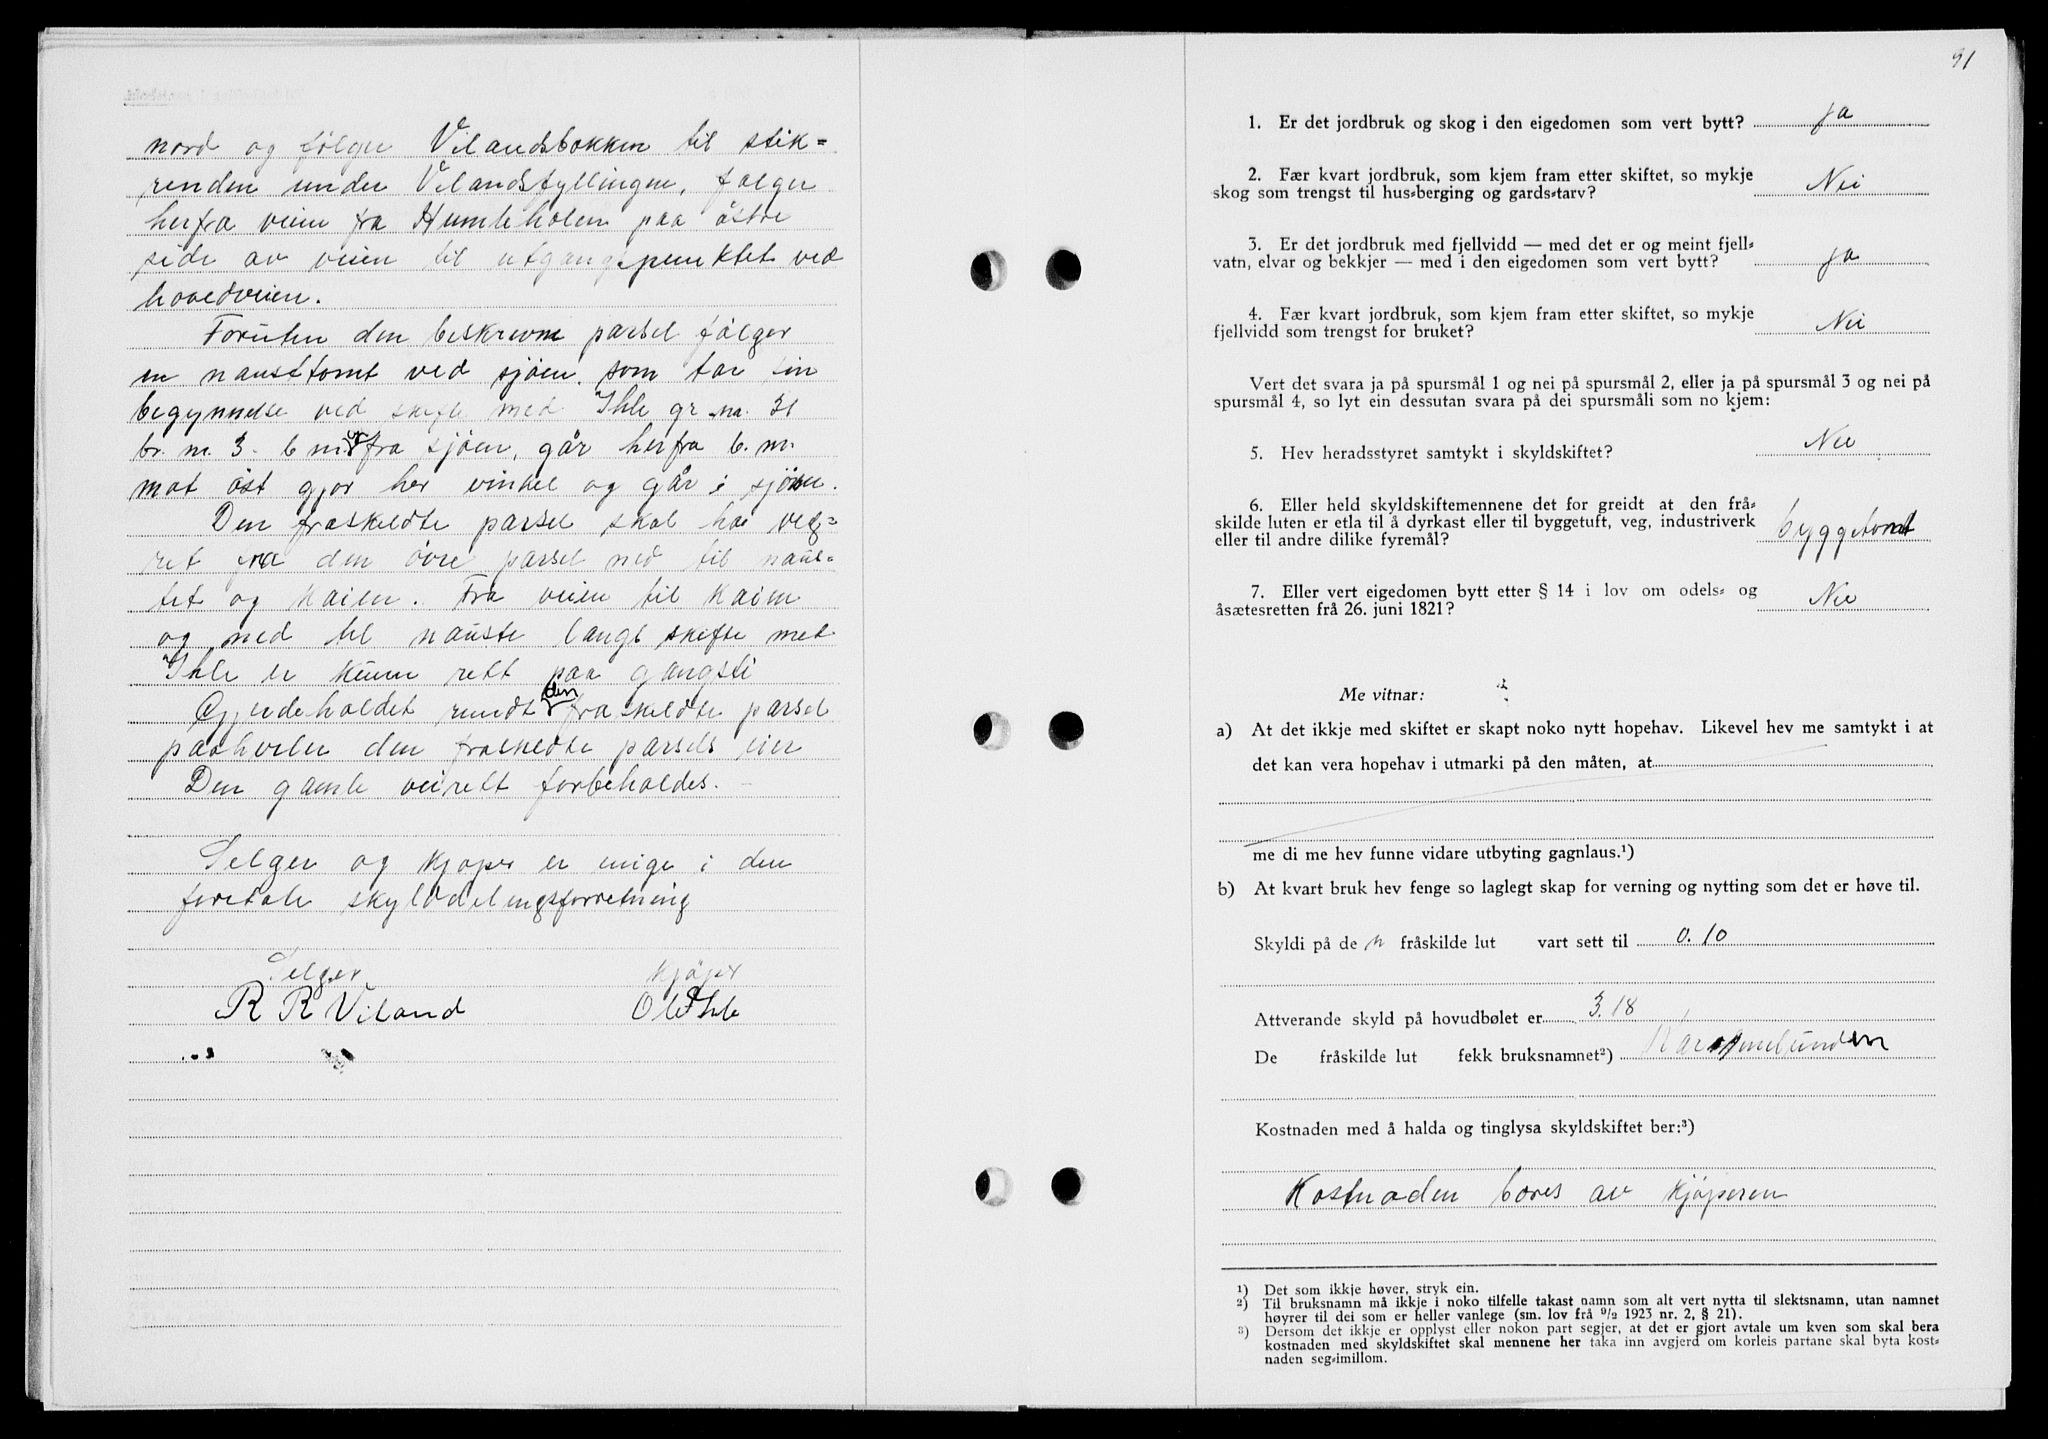 nord og følger Vilandsbekken til stik-
renden under Vilandsfyllingen, følger
herfra veien fra Humleholen paa östre
side av veien til utgangspunktet ved
hovedveien.
Foruten den beskrevne parsel følger
en nausttomt ved sjöen, som tar sin
begynnelse ved skifte med Ihle gr. no. 31
br. nr. 3. 6 m. fra sjöen, går herfra 6. m.
mot öst gjør her vinkel og går i sjöen.
Den fraskeldte parsel skal ha vei-
ret fra den övre parsel ned til naus-
tet og kaien. Fra veien til kaien
og ned til nauste langs skifte met
Ihle er kunn rett paa gangsti
Gjerdeholdet rundt den fraskeldte parsel
paahviler den fraskeldte parsels eier
Den gamle veirett forbeholdes. -
Selger og kjøper er enige i den
foretale skylddelingsforretning
Selger kjöper
R R Viland Ole Ihle
91
1. Er det jordbruk og skog i den eigedomen som vert bytt? ja
2. Fær kvart jordbruk, som kjem fram etter skiftet, so mykje
skog som trengst til hus-berging og gards-tarv? Nei
3. Er det jordbruk med fjellvidd — med det er og meint fjell-
vatn, elvar og bekkjer — med i den eigedomen som vert bytt? ja
4. Fær kvart jordbruk, som kjem fram etter skiftet, so mykje
fjellvidd som trengst for bruket? Nei
Vert det svara ja på spursmål 1 og nei på spursmål 2, eller ja på spursmål 3 og nei på
spursmål 4, so lyt ein dessutan svara på dei spursmåli som no kjem:
5. Hev heradsstyret samtykt i skyldskiftet? Nei
6. Eller held skyldskiftemennene det for greidt at den frå-
skilde luten er etla til å dyrkast eller til byggetuft, veg, industriverk
eller til andre dilike fyremål? byggetomt
7. Eller vert eigedomen bytt etter § 14 i lov om odels- og
åsætesretten frå 26. juni 1821? Nei
Me vitnar:
a) At det ikkje med skiftet er skapt noko nytt hopehav. Likevel hev me samtykt i at
det kan vera hopehav i utmarki på den måten, at
me di me hev funne vidare utbyting gagnlaus.¹)
b) At kvart bruk hev fenge so laglegt skap for verning og nytting som det er høve til.
Skyldi på de n fråskilde lut vart sett til 0.10
Attverande skyld på hovudbølet er 3.18
De fråskilde lut fekk bruksnamnet²)
Kostnaden med å halda og tinglysa skyldskiftet ber:³)
Kostnaden bæres av kjöperen
¹) Det som ikkje høver, stryk ein.
²) Til bruksnamn må ikkje i noko tilfelle takast namn som alt vert nytta til slektsnamn, utan namnet
høyrer til dei som er heller vanlege (sm. lov frå 9/2 1923 nr. 2, § 21).
³) Dersom det ikkje er opplyst eller nokon part segjer, at det er gjort avtale um kven som skal bera
kostnaden med skyldskiftet skal mennene her taka inn avgjerd om korleis partane skal byta kost-
naden seg-imillom.